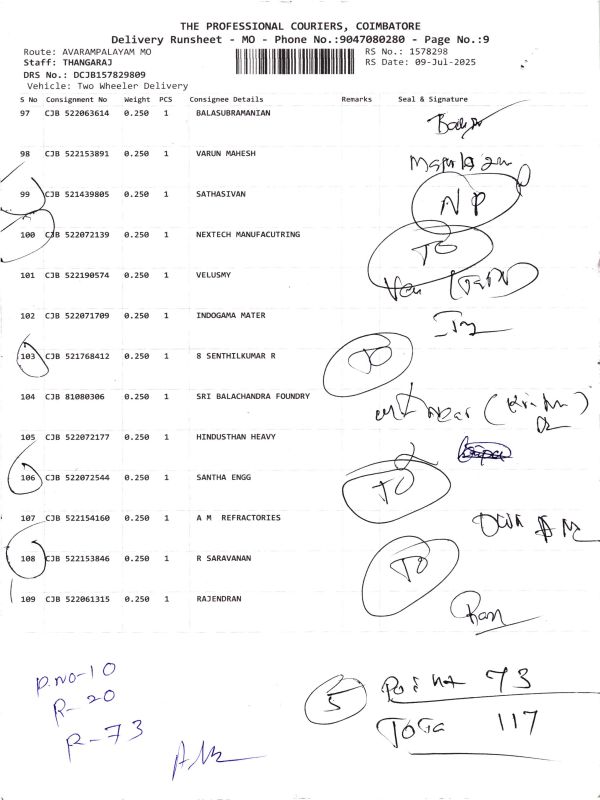 THE PROFESSIONAL COURIERS, COIMBATORE
Delivery Runsheet - MO - Phone No.:9047080280 - Page No.:9
Route: AVARAMPALAYAM MO RS No.: 1578298
Staff: THANGARAJ RS Date: 09-Jul-2025
DRS No.: DCJB157829809
Vehicle: Two Wheeler Delivery
S No Consignment No Weight PCS Consignee Details Remarks Seal & Signature
97 CJB 522063614 0.250 1 BALASUBRAMANIAN
98 CJB 522153891 0.250 1 VARUN MAHESH
99 CJB 521439805 0.250 1 SATHASIVAN NP
100 CJB 522072139 0.250 1 NEXTECH MANUFACUTRING TO
101 CJB 522190574 0.250 1 VELUSMY
102 CJB 522071709 0.250 1 INDOGAMA MATER
103 CJB 521768412 0.250 1 8 SENTHILKUMAR R TO
104 CJB 81080306 0.250 1 SRI BALACHANDRA FOUNDRY
105 CJB 522072177 0.250 1 HINDUSTHAN HEAVY
106 CJB 522072544 0.250 1 SANTHA ENGG TO
107 CJB 522154160 0.250 1 A M REFRACTORIES
108 CJB 522153846 0.250 1 R SARAVANAN TO
109 CJB 522061315 0.250 1 RAJENDRAN
P.NO-10
R-20
P-73
5 Point 73
TOTa 117